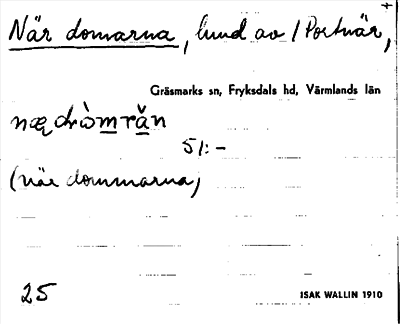 När domarna, lund av /Portnär,
Gräsmarks sn, Fryksdals hd, Värmlands län
næ dròmrăn
51:-
(när dommarna)
25
ISAK WALLIN 1910